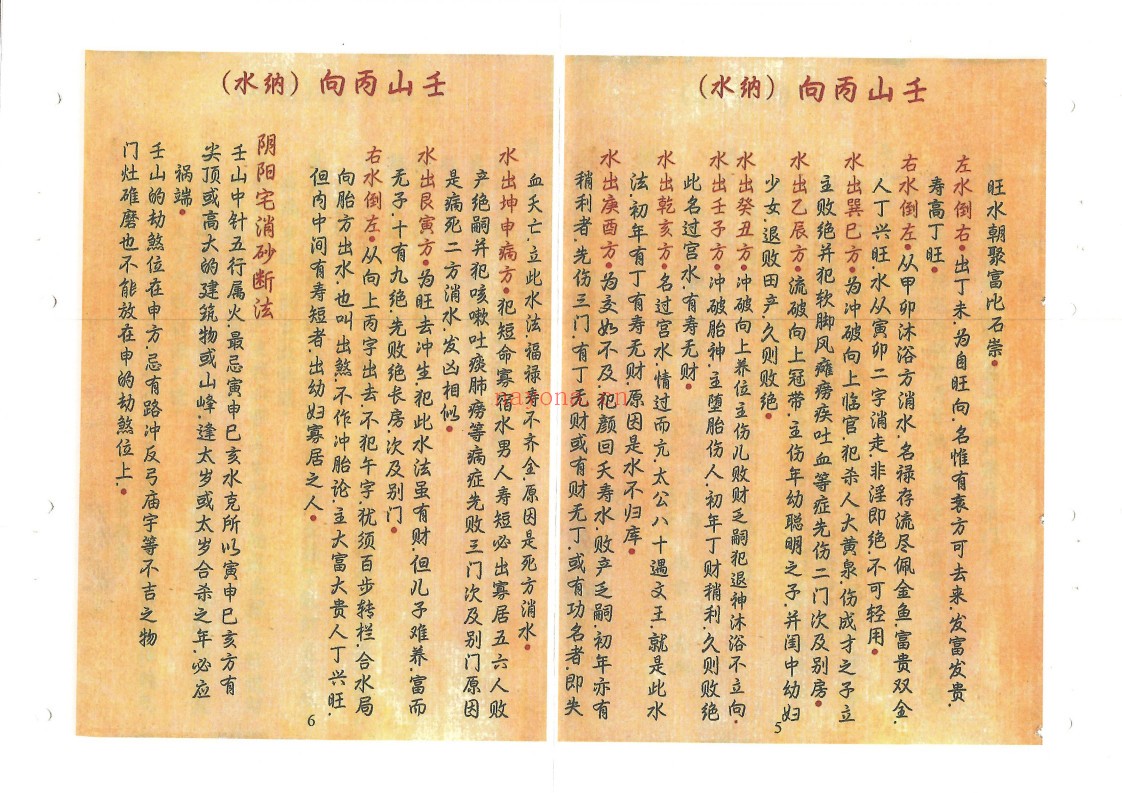 壬山丙向（纳水）
旺水朝聚富比石崇.
左水倒右.出丁未.为自旺向.名惟有衰方可去来.发富发贵.
寿高丁旺.
右水倒左.从甲卯沐浴方消水.名禄存流尽佩金鱼.富贵双全.
人丁兴旺.水从寅卯二字消走.非淫即绝.不可轻用.
水出巽巳方.为冲破向上临官.犯杀人大黄泉.伤成才之子立
主败绝并犯软脚风瘫痨疾吐血等症先伤二门次及别房.
水出乙辰方.流破向上冠带.主伤年幼聪明之子.并闺中幼妇
少女.退败田产.久则败绝.
水出癸丑方.冲破向上养位主伤儿败财乏嗣犯退神沐浴不立向.
水出壬子方.冲破胎神.主堕胎伤人.初年丁财稍利.久则败绝
此名过宫水.有寿无财.
水出乾亥方.名过宫水.情过而亢.太公八十遇文王.就是此水
法.初年有丁有寿无财.原因是水不归库.
水出庚酉方.为交如不及.犯颜回夭寿水.败产乏嗣.初年亦有
稍利者.先伤三门.有丁无财或有财无丁.或有功名者.即失
5
壬山丙向（纳水）
血夭亡.立此水法.福禄寿不齐全.原因是死方消水.
水出坤申病方.犯短命寡宿水男人寿短必出寡居五六人败
产绝嗣并犯咳嗽吐痰肺痨等病症先败三门次及别门原因
是病死二方消水.发凶相似.
水出艮寅方.为旺去冲生.犯此水法虽有财.但儿子难养.富而
无子.十有九绝.先败绝长房.次及别门
右水倒左.从向上丙字出去.不犯午字.犹须百步转栏.合水局
向胎方出水.也叫出煞.不作冲胎论.主大富大贵人丁兴旺.
但内中间有寿短者.出幼妇寡居之人.
阴阳宅消砂断法
壬山中针五行属火.最忌寅申巳亥水克所以寅申巳亥方有
尖顶或高大的建筑物或山峰.逢太岁或太岁合杀之年.必应
祸端.
壬山的劫煞位在申方.忌有路冲反弓庙宇等不吉之物
门灶碓磨也不能放在申的劫煞位上.
6
nayona.cn